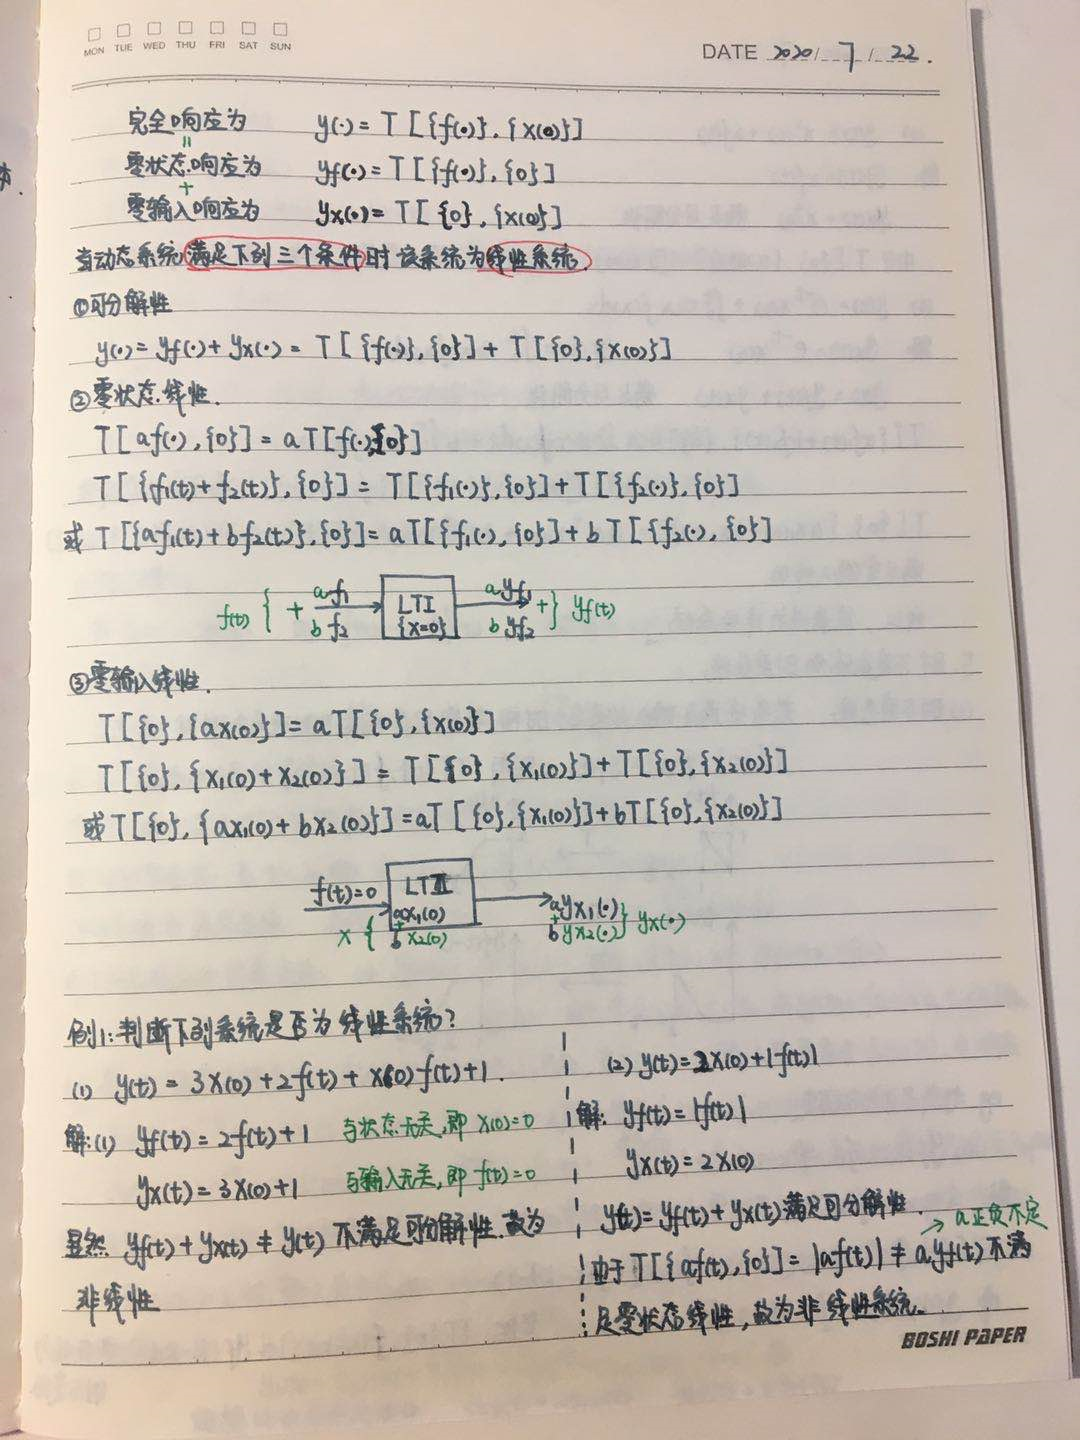 MON TUE WED THU FRI SAT SUN
DATE 2020/7/22.
完全响应为 y(·)=T[{f(·)},{x(0)}]
=
零状态响应为 yf(·)=T[{f(·)},{0}]
+
零输入响应为 yx(·)=T[{0},{x(0)}]
当动态系统满足下列三个条件时该系统为线性系统.
①可分解性
y(·)=yf(·)+yx(·)=T[{f(·)},{0}]+T[{0},{x(0)}]
②零状态线性.
T[af(·),{0}]=aT[f(·){0}]
T[{f₁(t)+f₂(t)},{0}]=T[{f₁(·)},{0}]+T[{f₂(·)},{0}]
或T[{af₁(t)+bf₂(t)},{0}]=aT[{f₁(·),{0}]+bT[{f₂(·),{0}]
f(t) { + af₁ LTI ayf₁ + } yf(t)
bf₂ {x=0} b yf₂
③零输入线性.
T[{0},{ax(0)}]=aT[{0},{x(0)}]
T[{0},{x₁(0)+x₂(0)}]=T[{0},{x₁(0)}]+T[{0},{x₂(0)}]
或T[{0},{ax₁(0)+bx₂(0)}]=aT[{0},{x₁(0)}]+bT[{0},{x₂(0)}]
f(t)=0 LTI
ax₁(0) ayx₁(·)
x { + + } yx(·)
b x₂(0) b yx₂(·)
例1:判断下列系统是否为线性系统?
(1) y(t)=3x(0)+2f(t)+x(0)f(t)+1.
解:(1) yf(t)=2f(t)+1 与状态无关,即x(0)=0
yx(t)=3x(0)+1 与输入无关,即f(t)=0
显然 yf(t)+yx(t)≠y(t)不满足可分解性.故为
非线性
(2) y(t)=2x(0)+|f(t)|
解: yf(t)=|f(t)|
yx(t)=2x(0)
y(t)=yf(t)+yx(t)满足可分解性.
→ a正负不定
由于T[{af(t),{0}]=|af(t)|≠ayf(t)不满
足零状态线性,故为非线性系统.
BOSHI PAPER